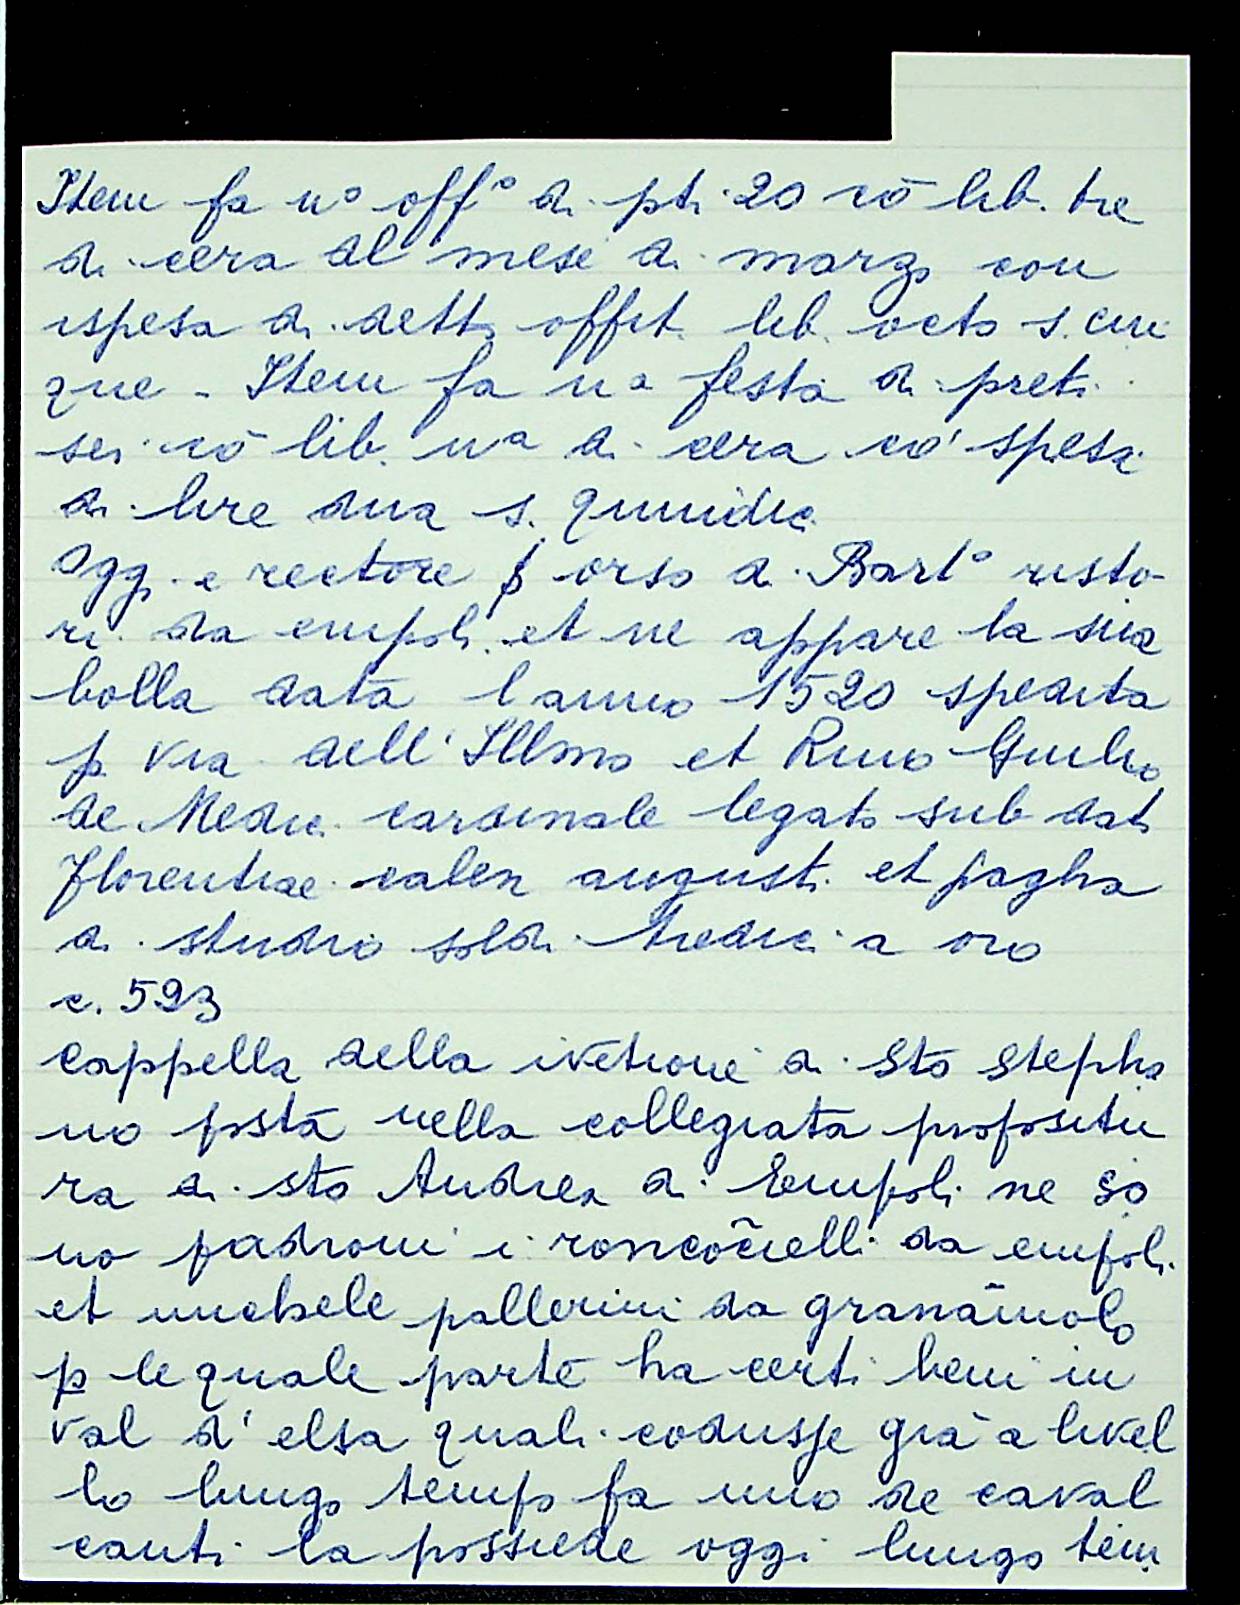 Item fa uº offº di pti 20 cō lib. tre
di cera al mese di marzo con
ispesa di detto offit. lib. octo s. cin
que - Item fa uª festa di preti
sei cō lib. uª di cera co' spesa
di lire dua s. quindici
Oggi e rectore ser orso di Bartº risto-
ri da empoli et ne appare la sua
bolla data l anno 1520 spedita
p via dell' Illmo et Rmo Giulio
de Medici cardinale legato sub dat
florentiae calen augusti et pagha
di studio soldi tredici a oro
c. 593
Cappella della ivetione di Sto Stepha
no posta nella collegiata propositu
ra di sto Andrea di Empoli ne so
no padroni i da empoli
et michele pallerini da granaiuolo
p le quale parte ha certi beni in
val d' elsa quali codusse gia a livel
lo lungo tempo fa uno de caval
canti la possiede oggi lungo tem